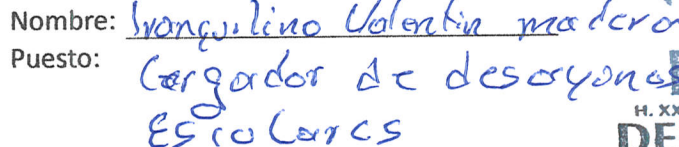 Nombre: Tranquilino Valentin madera
Puesto: Cargador de desayunos
Escolares
H. XX
DE